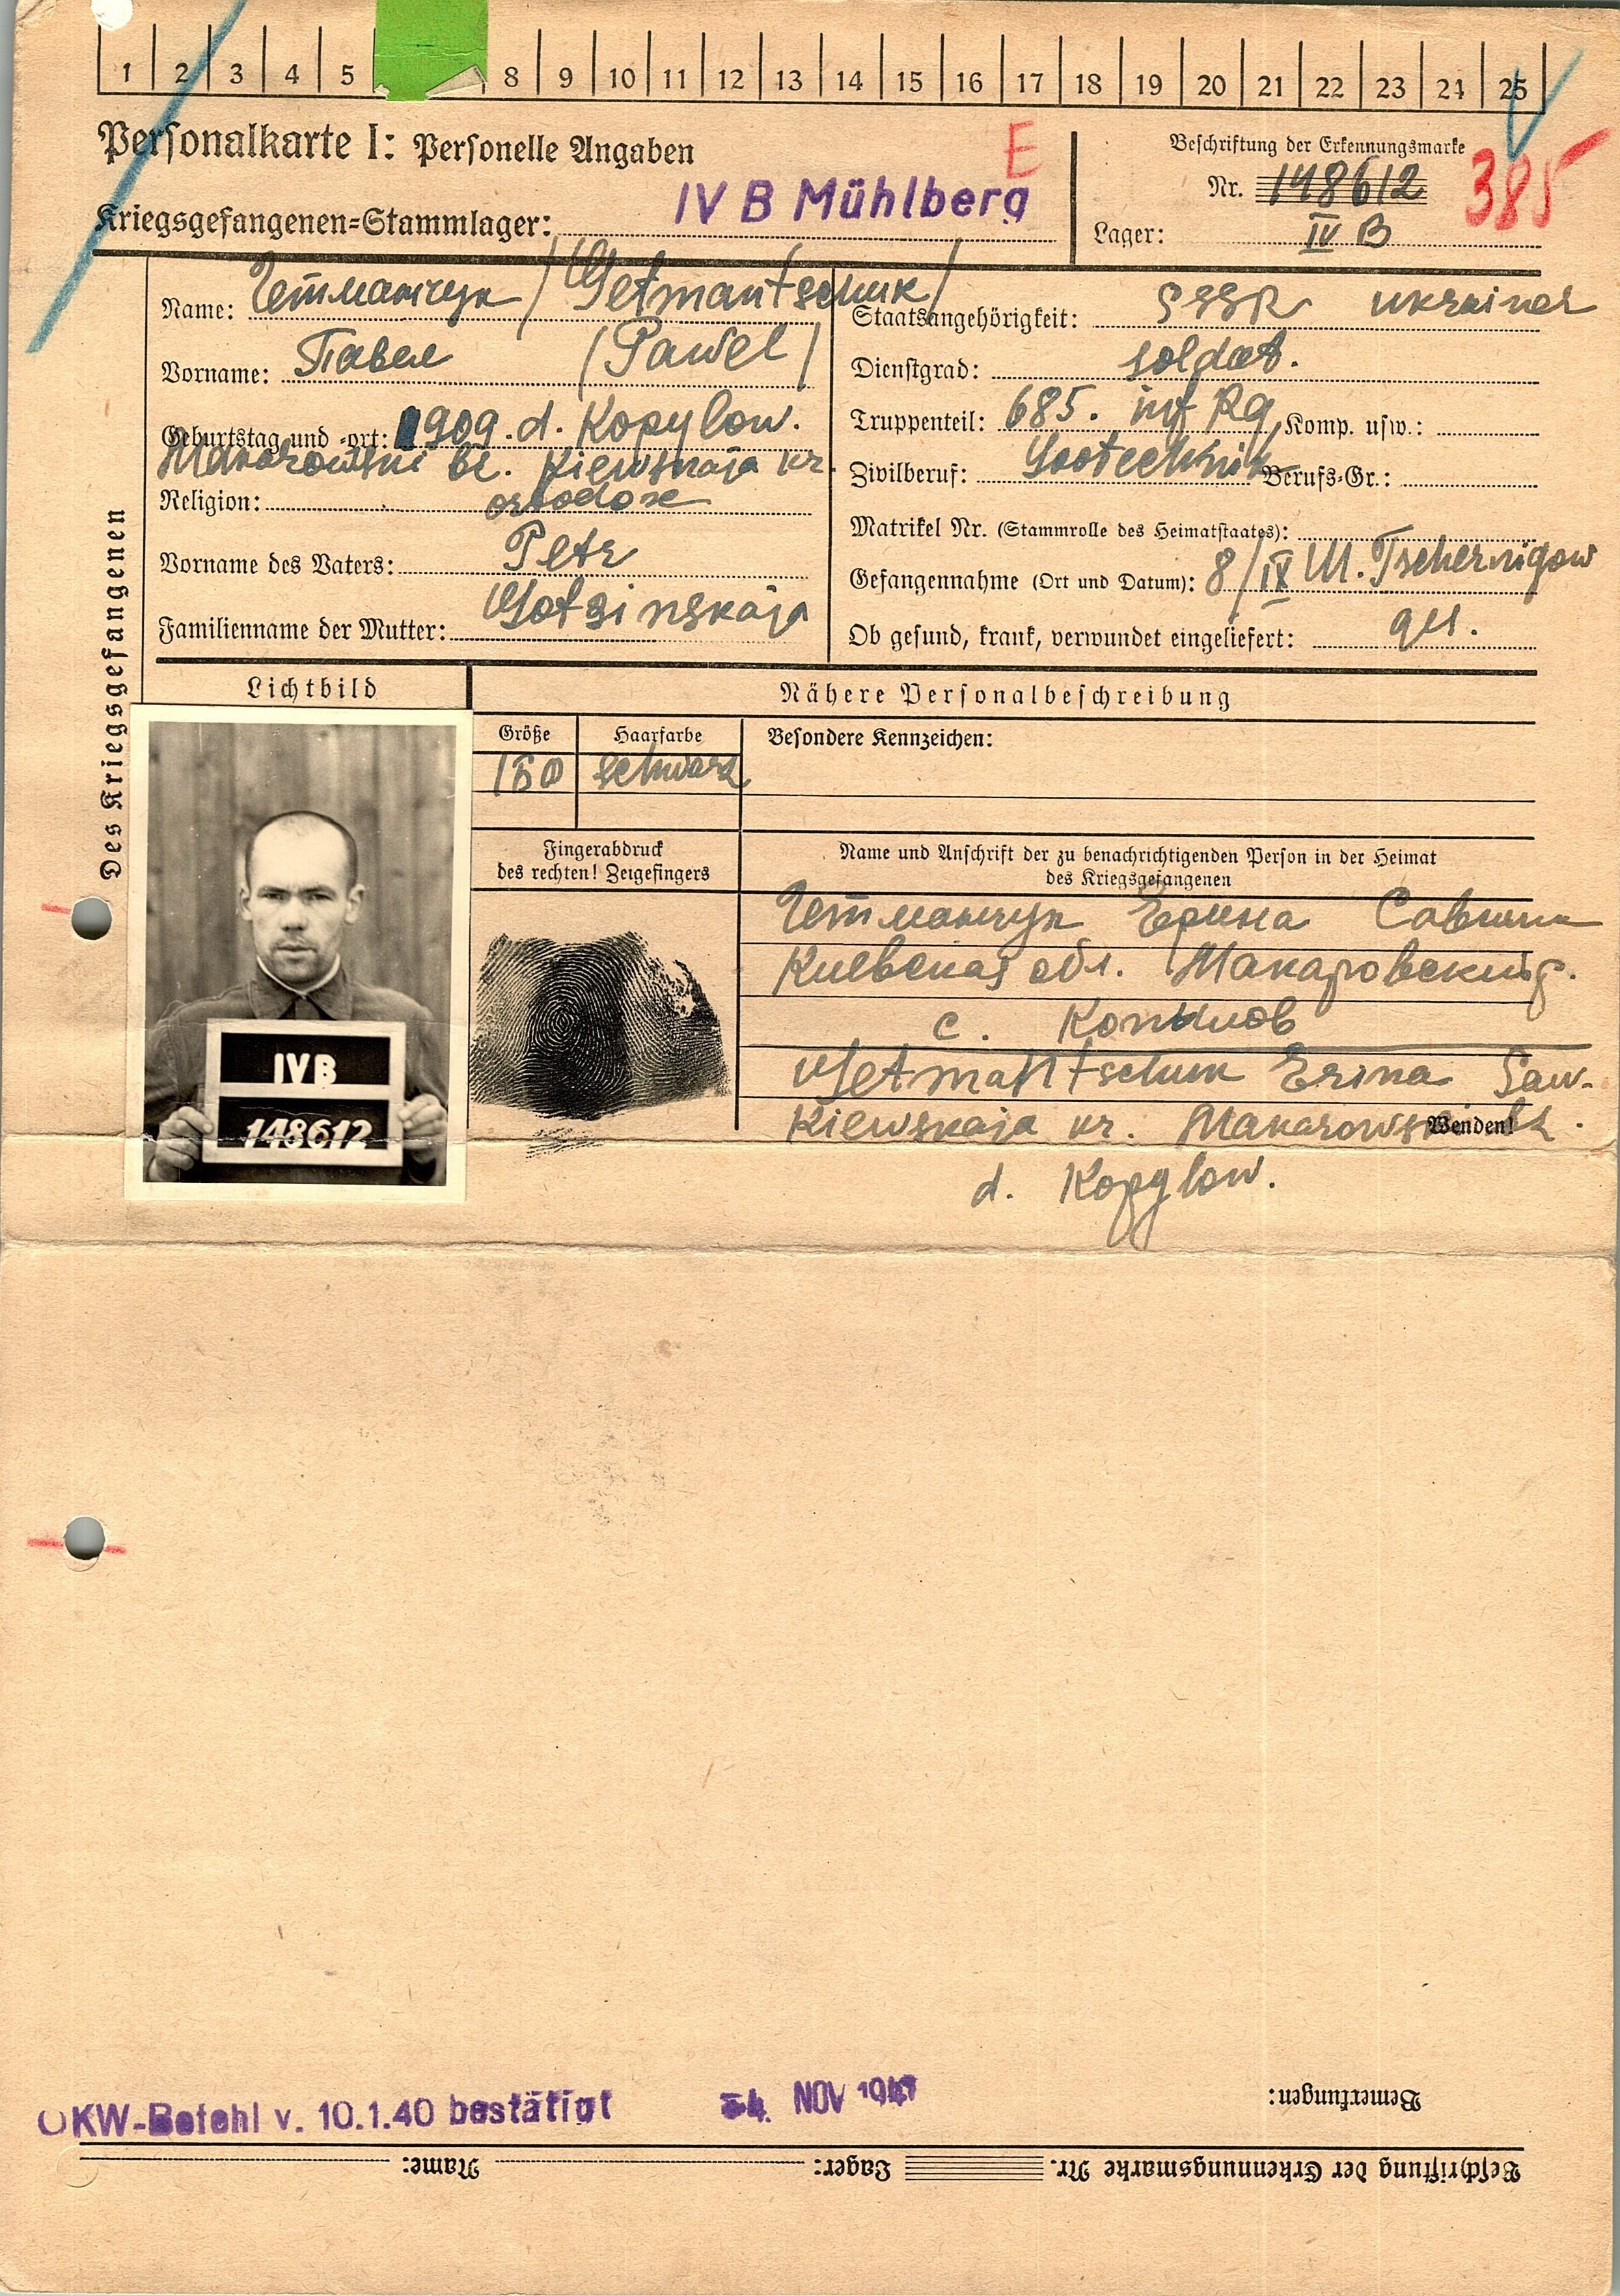 1 2 3 4 5 8 9 10 11 12 13 14 15 16 17 18 19 20 21 22 23 24 25
Personalkarte I: Personelle Angaben
E
Kriegsgefangenen-Stammlager: IV B Mühlberg
Beschriftung der Erkennungsmarke
Nr. 148612 385
Lager: IV B
Des Kriegsgefangenen
Name: Гетманчук /Getmantschuk/
Vorname: Павел /Pawel/
Geburtstag und -ort: 1909. d. Kopylow.
Makarowski bz. Kiewskaja kr.
Religion: ortodox
Vorname des Vaters: Petr
Familienname der Mutter:
Staatsangehörigkeit: SSSR Ukrainer
Dienstgrad: soldat.
Truppenteil: 685. inf Rg, Komp. usw.:
Zivilberuf: Sootechnik Berufs-Gr.:
Matrikel Nr. (Stammrolle des Heimatstaates):
Gefangennahme (Ort und Datum): 8/IX 41. Tschernigow
Ob gesund, krank, verwundet eingeliefert: ges.
Lichtbild
IVB
148612
Nähere Personalbeschreibung
Größe Haarfarbe Besondere Kennzeichen:
160 schwarz
Fingerabdruck
des rechten! Zeigefingers
Name und Anschrift der zu benachrichtigenden Person in der Heimat
des Kriegsgefangenen
Гетманчук Ерина
Киевская обл. Макаровский р.
с. Копылов
Getmantschuk Erina Saw.
Kiewskaja kr. Makarowski bz.
Wenden!
d. Kopylow.
OKW-Befehl v. 10.1.40 bestätigt 4. NOV 1941
Bemerkungen:
Beschriftung der Erkennungsmarke Nr. Lager: Name: